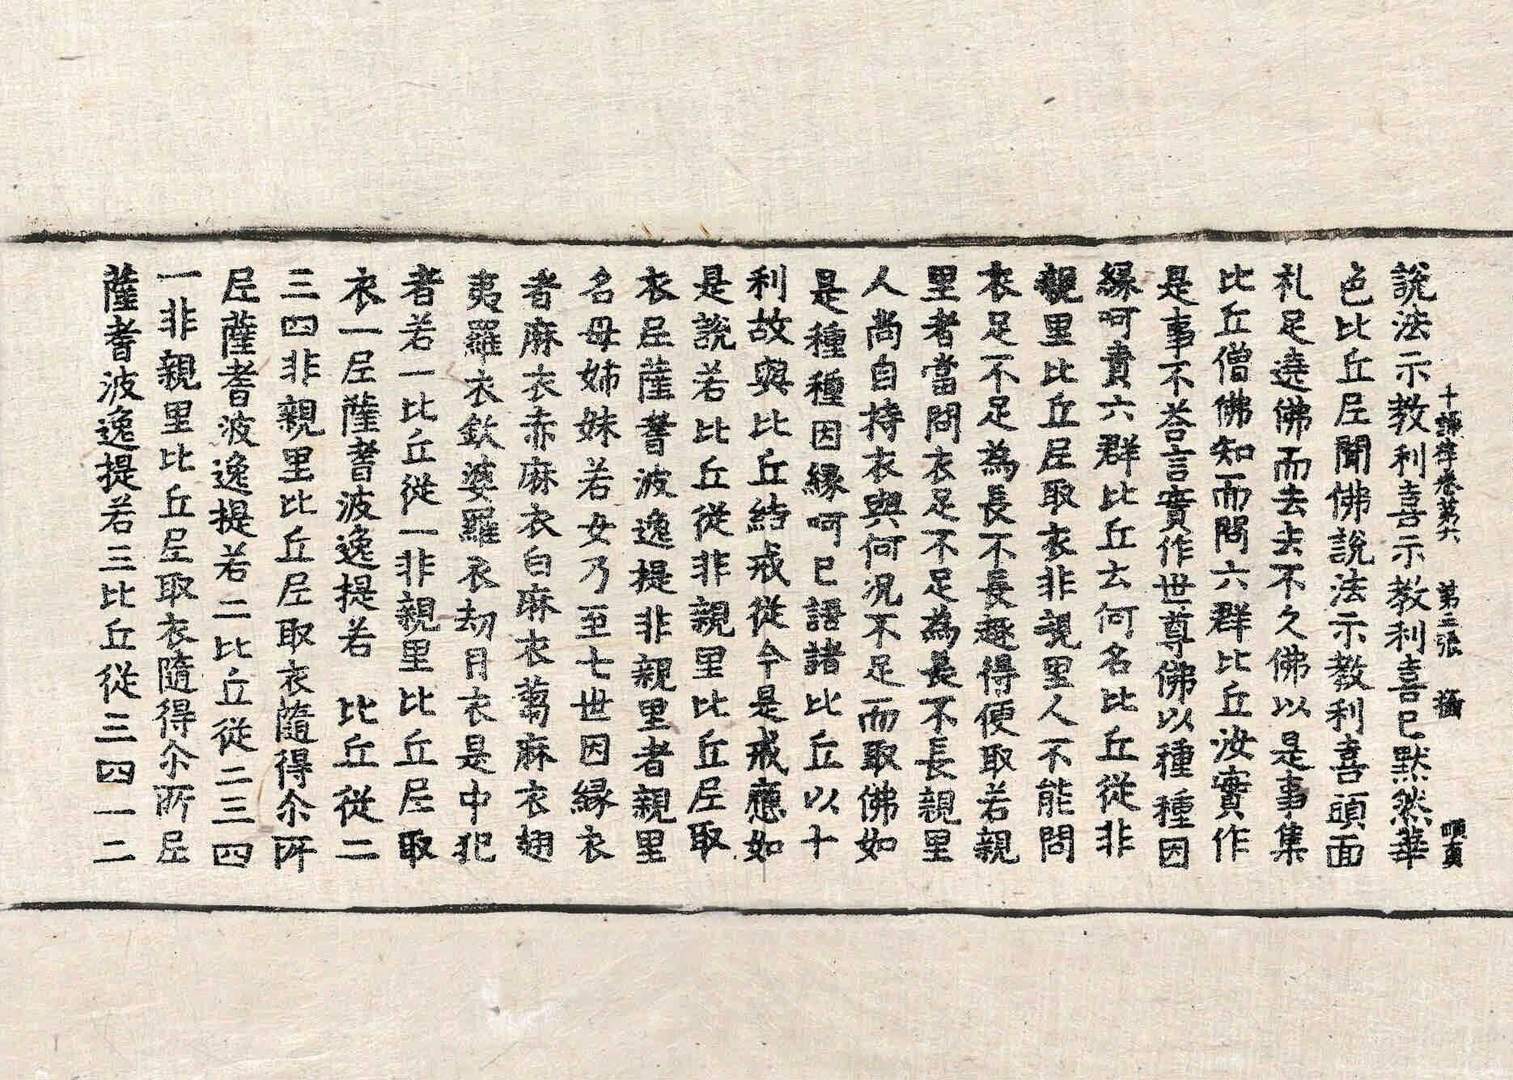 十誦律卷第六　第三張　㨨
說法示教利喜示教利喜已默然華
色比丘尼聞佛說法示教利喜頭面
礼足遶佛而去去不久佛以是事集
比丘僧佛知而問六群比丘汝實作
是事不荅言實作世尊佛以種種因
緣呵責六群比丘云何名比丘從非
親里比丘尼取衣非親里人不能問
衣足不足為長不長趣得便取若親
里者當問衣足不足為長不長親里
人尚自持衣與何況不足而取佛如
是種種因緣呵已語諸比丘以十
利故與比丘結戒從今是戒應如
是說若比丘從非親里比丘尼取
衣尼薩耆波逸提非親里者親里
名母姊妹若女乃至七世因緣衣
者麻衣赤麻衣白麻衣蒭麻衣翅
夷羅衣欽婆羅衣劫貝衣是中犯
者若一比丘從一非親里比丘尼取
衣一尼薩耆波逸提若　比丘從二
三四非親里比丘尼取衣隨得尒所
尼薩耆波逸提若二比丘從二三四
一非親里比丘尼取衣隨得尒所尼
薩耆波逸提若三比丘從三四一二